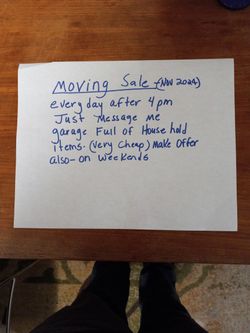 Moving Sale (Nov 2024)
every day after 4pm
Just Message me
garage Full of House hold
items. (very Cheap) Make Offer
also - on weekends